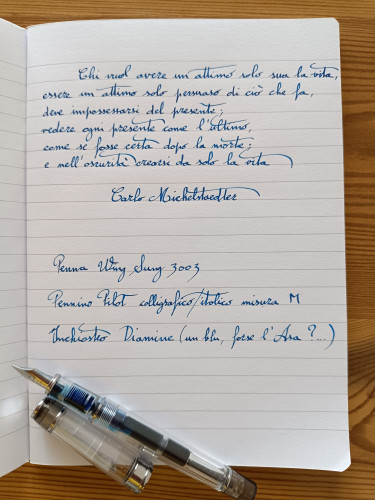 Chi vuol avere un attimo solo sua la vita,
essere un attimo solo persuaso di ciò che fa,
deve impossessarsi del presente;
vedere ogni presente come l'ultimo,
come se fosse certa dopo la morte;
e nell'oscurità crearsi da solo la vita
Carlo Michelstaedter
Penna Wing Sung 3003
Pennino Pilot calligrafico/italico misura M
Inchiostro Diamine (un blu, forse l'Asa ?...)